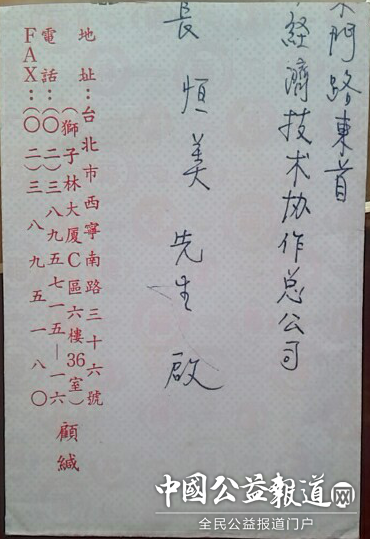 門路東首
經濟技术协作总公司
長恒美先生啟
地址：台北市西寧南路三十六號
（獅子林大厦C區六樓36室）
電話：（〇二）三八九五七一五—一六
FAX：（〇二）三八九五一八〇
顧緘
中國公益報道网
全民公益报道门户